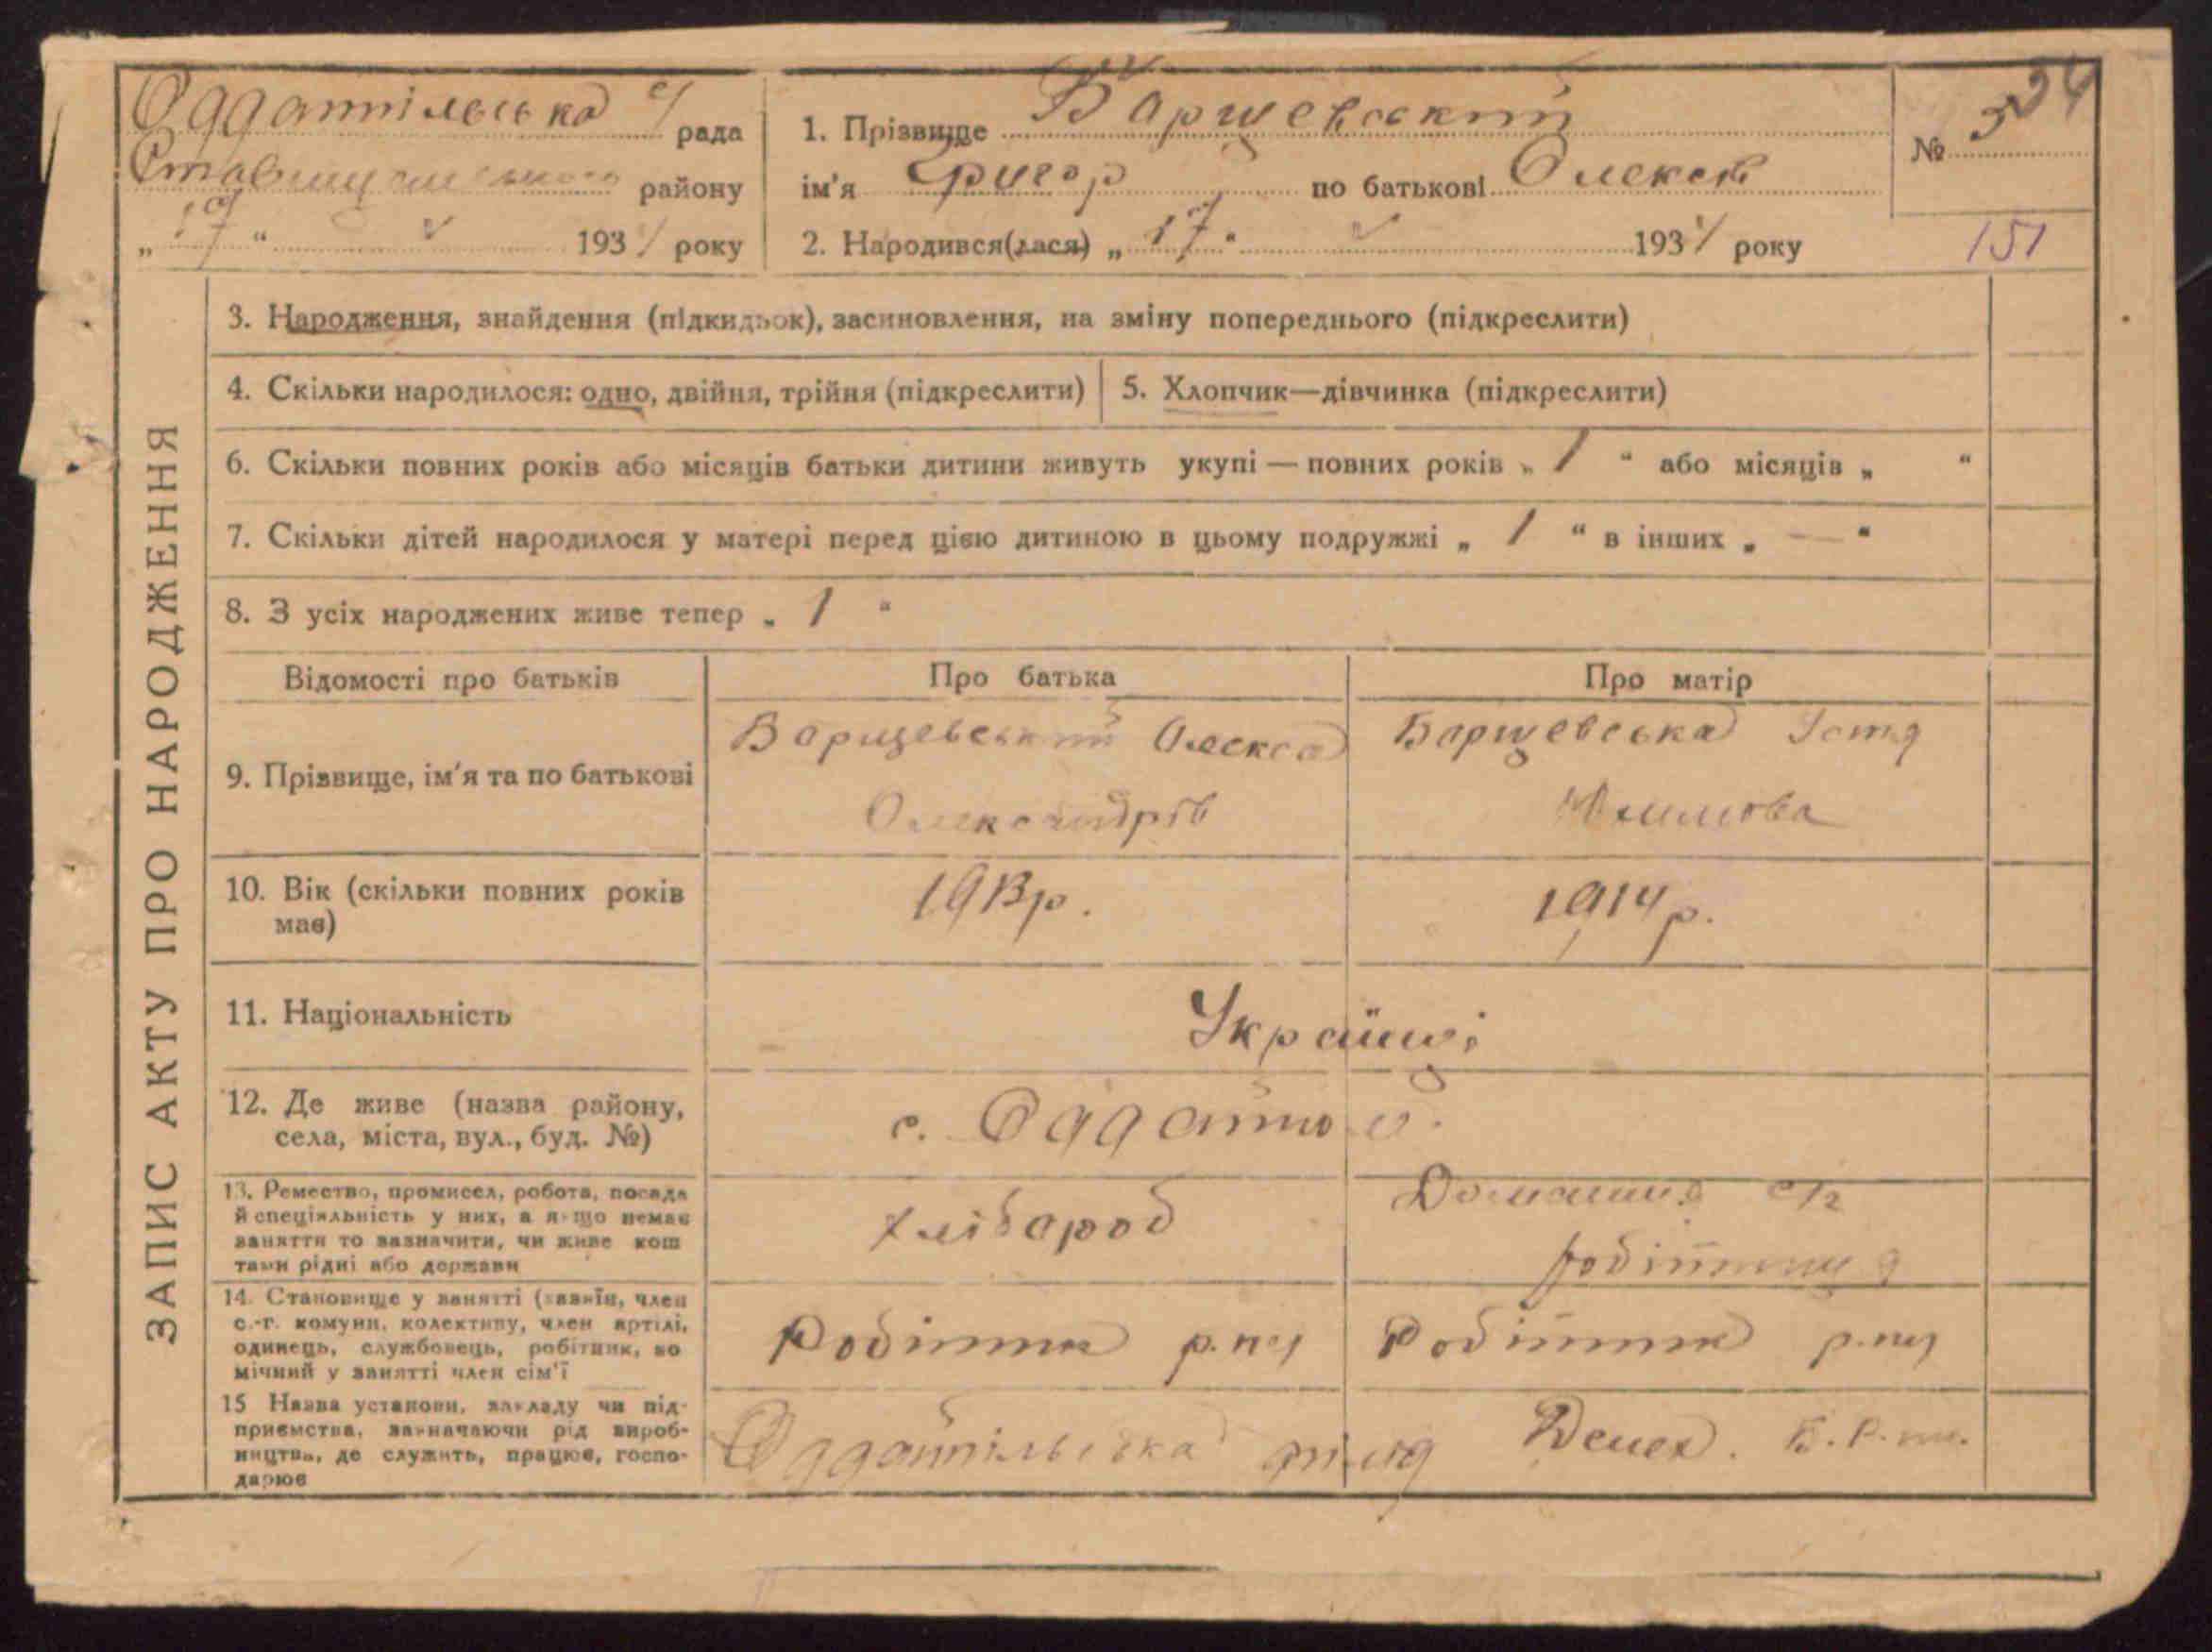 Оддайпільська с/рада
Ставищанського району
„17“ V 1934 року
1. Прізвище Варщевський
ім'я Григор по батькові Олексів
2. Народився(лася) „17“ V 1934 року
№ 3
34
151
ЗАПИС АКТУ ПРО НАРОДЖЕННЯ
3. Народження, знайдення (підкидьок), засиновлення, на зміну попереднього (підкреслити)
4. Скільки народилося: одно, двійня, трійня (підкреслити)
5. Хлопчик—дівчинка (підкреслити)
6. Скільки повних років або місяців батьки дитини живуть укупі — повних років „ 1 “ або місяців „ “
7. Скільки дітей народилося у матері перед цією дитиною в цьому подружжі „ 1 “ в інших „ — “
8. З усіх народжених живе тепер „ 1 “
Відомості про батьків
Про батька
Про матір
9. Прізвище, ім'я та по батькові
Варщевський Олекса
Олександрів
Варщевська Устя
10. Вік (скільки повних років
має)
1913р.
1914р.
11. Національність
Українці
12. Де живе (назва району,
села, міста, вул., буд. №)
с.
13. Ремество, промисел, робота, посада
й спеціяльність у них, а якщо немає
заняття то зазначити, чи живе кош
тами рідні або держави
хлібороб
Домашня
робітниця
14. Становище у занятті (хазяїн, член
с.-г. комуни, колективу, член артілі,
одинець, службовець, робітник, по
мічний у занятті член сім'ї
Робітник
Робітник
15 Назва установи, закладу чи під-
приємства, зазначаючи рід вироб-
ництва, де служить, працює, госпо-
дарює
Оддайпільська